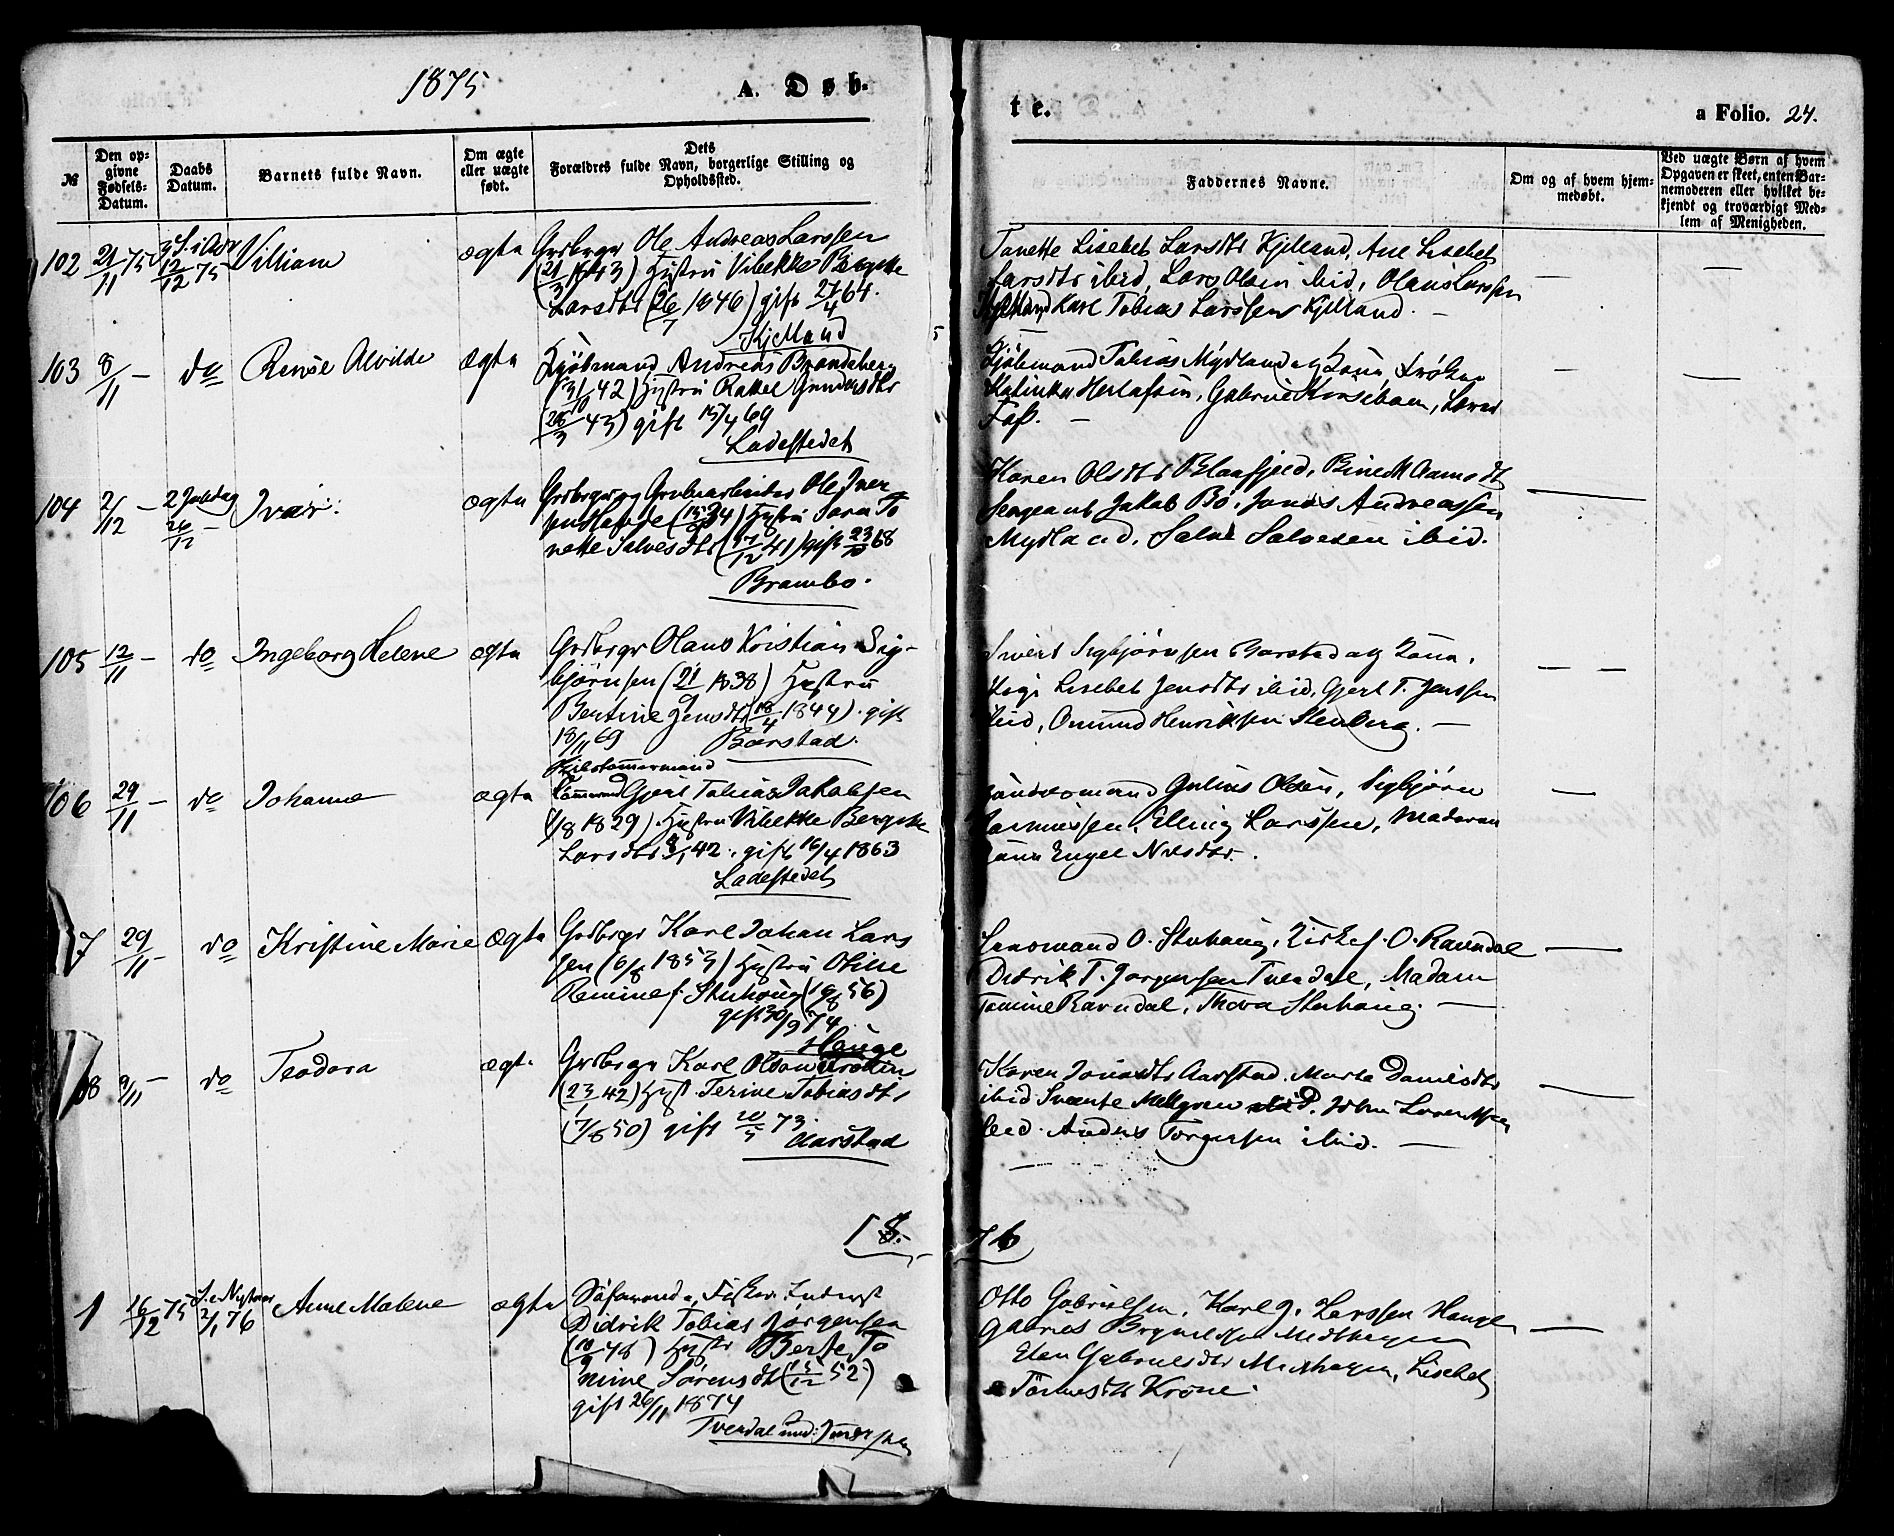 1875
A. Døb-
te.
a Folio. 24.
№
Den op-
givne
Fødsels-
Datum.
Daabs
Datum.
Barnets fulde Navn.
Om ægte
eller uægte
født.
Dets
Forældres fulde Navn, borgerlige Stilling og
Opholdssted.
Faddernes Navne.
Om og af hvem hjem-
medøbt.
Ved uægte Børn af hvem
Opgaven er skeet, enten Bar-
nemoderen eller hvilket be-
kjendt og troværdigt Med-
lem af Menigheden.
102 21/11 75 3 S. i Adv 12/12 75 Villiam ægte Grdbrgr Ole Andreas Larssen
Hustru Vibekke Bergitte
Larsdtr (26/7 1846) gift 27/4 64.
Kjelland
Tanette Lisebet Larsdtr Kjelland, Ane Lisebet
Larsdtr ibid, Lars Olsen ibid, Olaus Larssen
Kjelland Karl Tobias Larssen Kjelland. —
103 8/11 — do Rense Alvilde ægte Kjøbmand Andreas Brandsberg
(31/10 42) Hustru Rakel Gundersdtr
(28/3 43) gift 15/4 69
Ladestedet
Kjøbmand Tobias Mydland og Kone, Frøken
Katinka Gabriel
Fass. —
104 2/12 — 2 Juledag 26/12 — Ivar ægte Grdbrgr og Grubearbeider Ole Iver
Hustru Sara To
nette Salvesdtr (17/12 41) gift 23/10 68
Brambo.
Karen Olsdtr Blaafjeld, Aamodt
Sergeant Jakob Bø, Jonas Andreassen
Mydland, Salve Salvesen ibid.
105 12/11 — do Ingeborg Helene ægte Grdbrgr Olaus Kristian Sig-
bjørnsen (21/9 1838) Hustru
Bertine Jensdtr (18/4 1844). gift
18/11 69 Barstad.
Sivert Sigbjørnsen Barstad og Kone,
Lisebet Jensdtr ibid, Gjert T. Jenssen
ibid, Omund Henriksen Stenberg. —
106 29/11 — do Johanna ægte
Gjert Tobias Jakobsen
(1/8 1829) Hustru Vibekke Bergitte
Larsdtr 42. gift 16/4 1863
Ladestedet
Julius Olsen, Sigbjørn
Rasmussen, Elling Larssen, Madam
Engel Nilsdtr.
7 29/11 — do Kristine Marie ægte Grdbrgr Karl Johan Lars
sen (6/8 1853) Hustru Oline
Remine f. Stuhoug (19/8 56)
gift 30/9 74
Hauge
Lensmand O. Stuhaug, O. Ravndal
Didrik T. Jørgensen Tverdal, Madam
Tomine Ravndal, Thora Stuhaug. —
08 9/11 — do Teodora ægte Grdbrgr Karl
(23/1 42) Hust. Terine Tobiasdtr
(7/8 50) gift 20/5 73.
Aarstad
Karen Jonasdtr Aarstad. Marta Danielsdtr
ibid Svante Mellgren ibid. John Lorentsen
ibid. Anders Torgersen ibid. —
18
76
1 26/12 75 S. e. Nytaar 2/1 76 Anne Malene ægte Søfarende, Fisker
Didrik Tobias Jørgensen
Hustr Berte To
mine Sørensdtr (15/12 52)
gift 26/11 1874
Tverdal
Otto Gabrielsen, Karl J. Larssen Hauge
Gabriel
Elen Gabrielsdtr Lisebet
Krone.